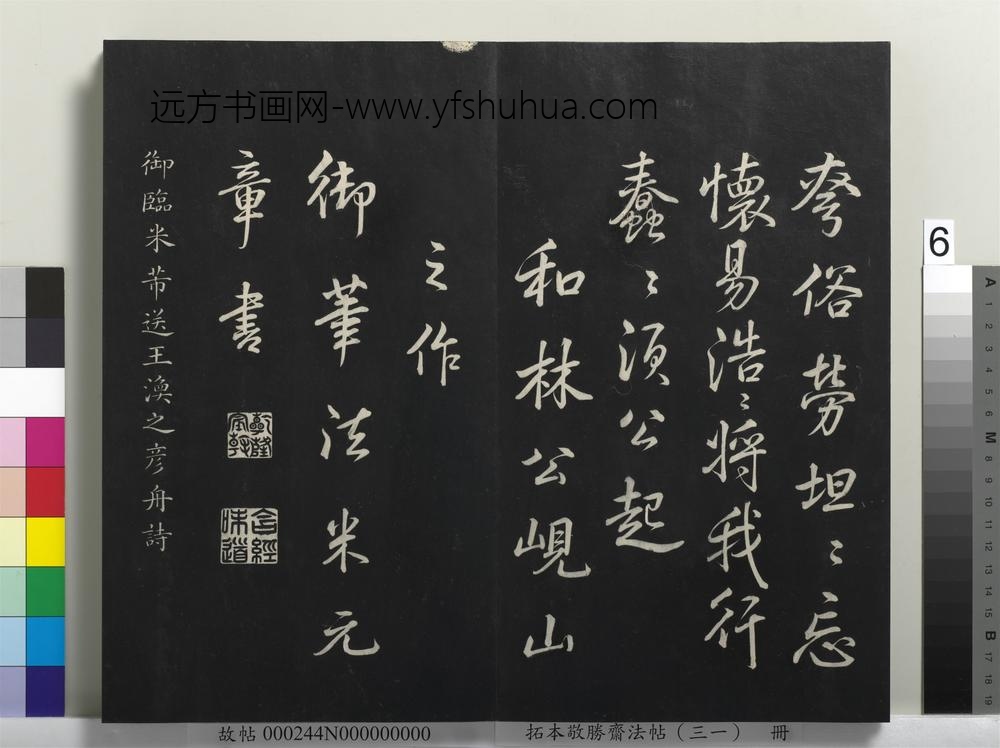 远方书画网-www.yfshuhua.com
夸俗劳坦〻忘
懷易浩〻將我行
蠢〻須公起
和林公峴山
之作
御筆法米元
章書
乾隆
宸翰
含經
味道
御臨米芾送王渙之彦舟詩
6
A 1 2 3 4 5 6 M 8 9 10 11 12 13 14 15 B 17 18 19
故帖 000244N000000000
拓本敬勝齋法帖（三一） 冊